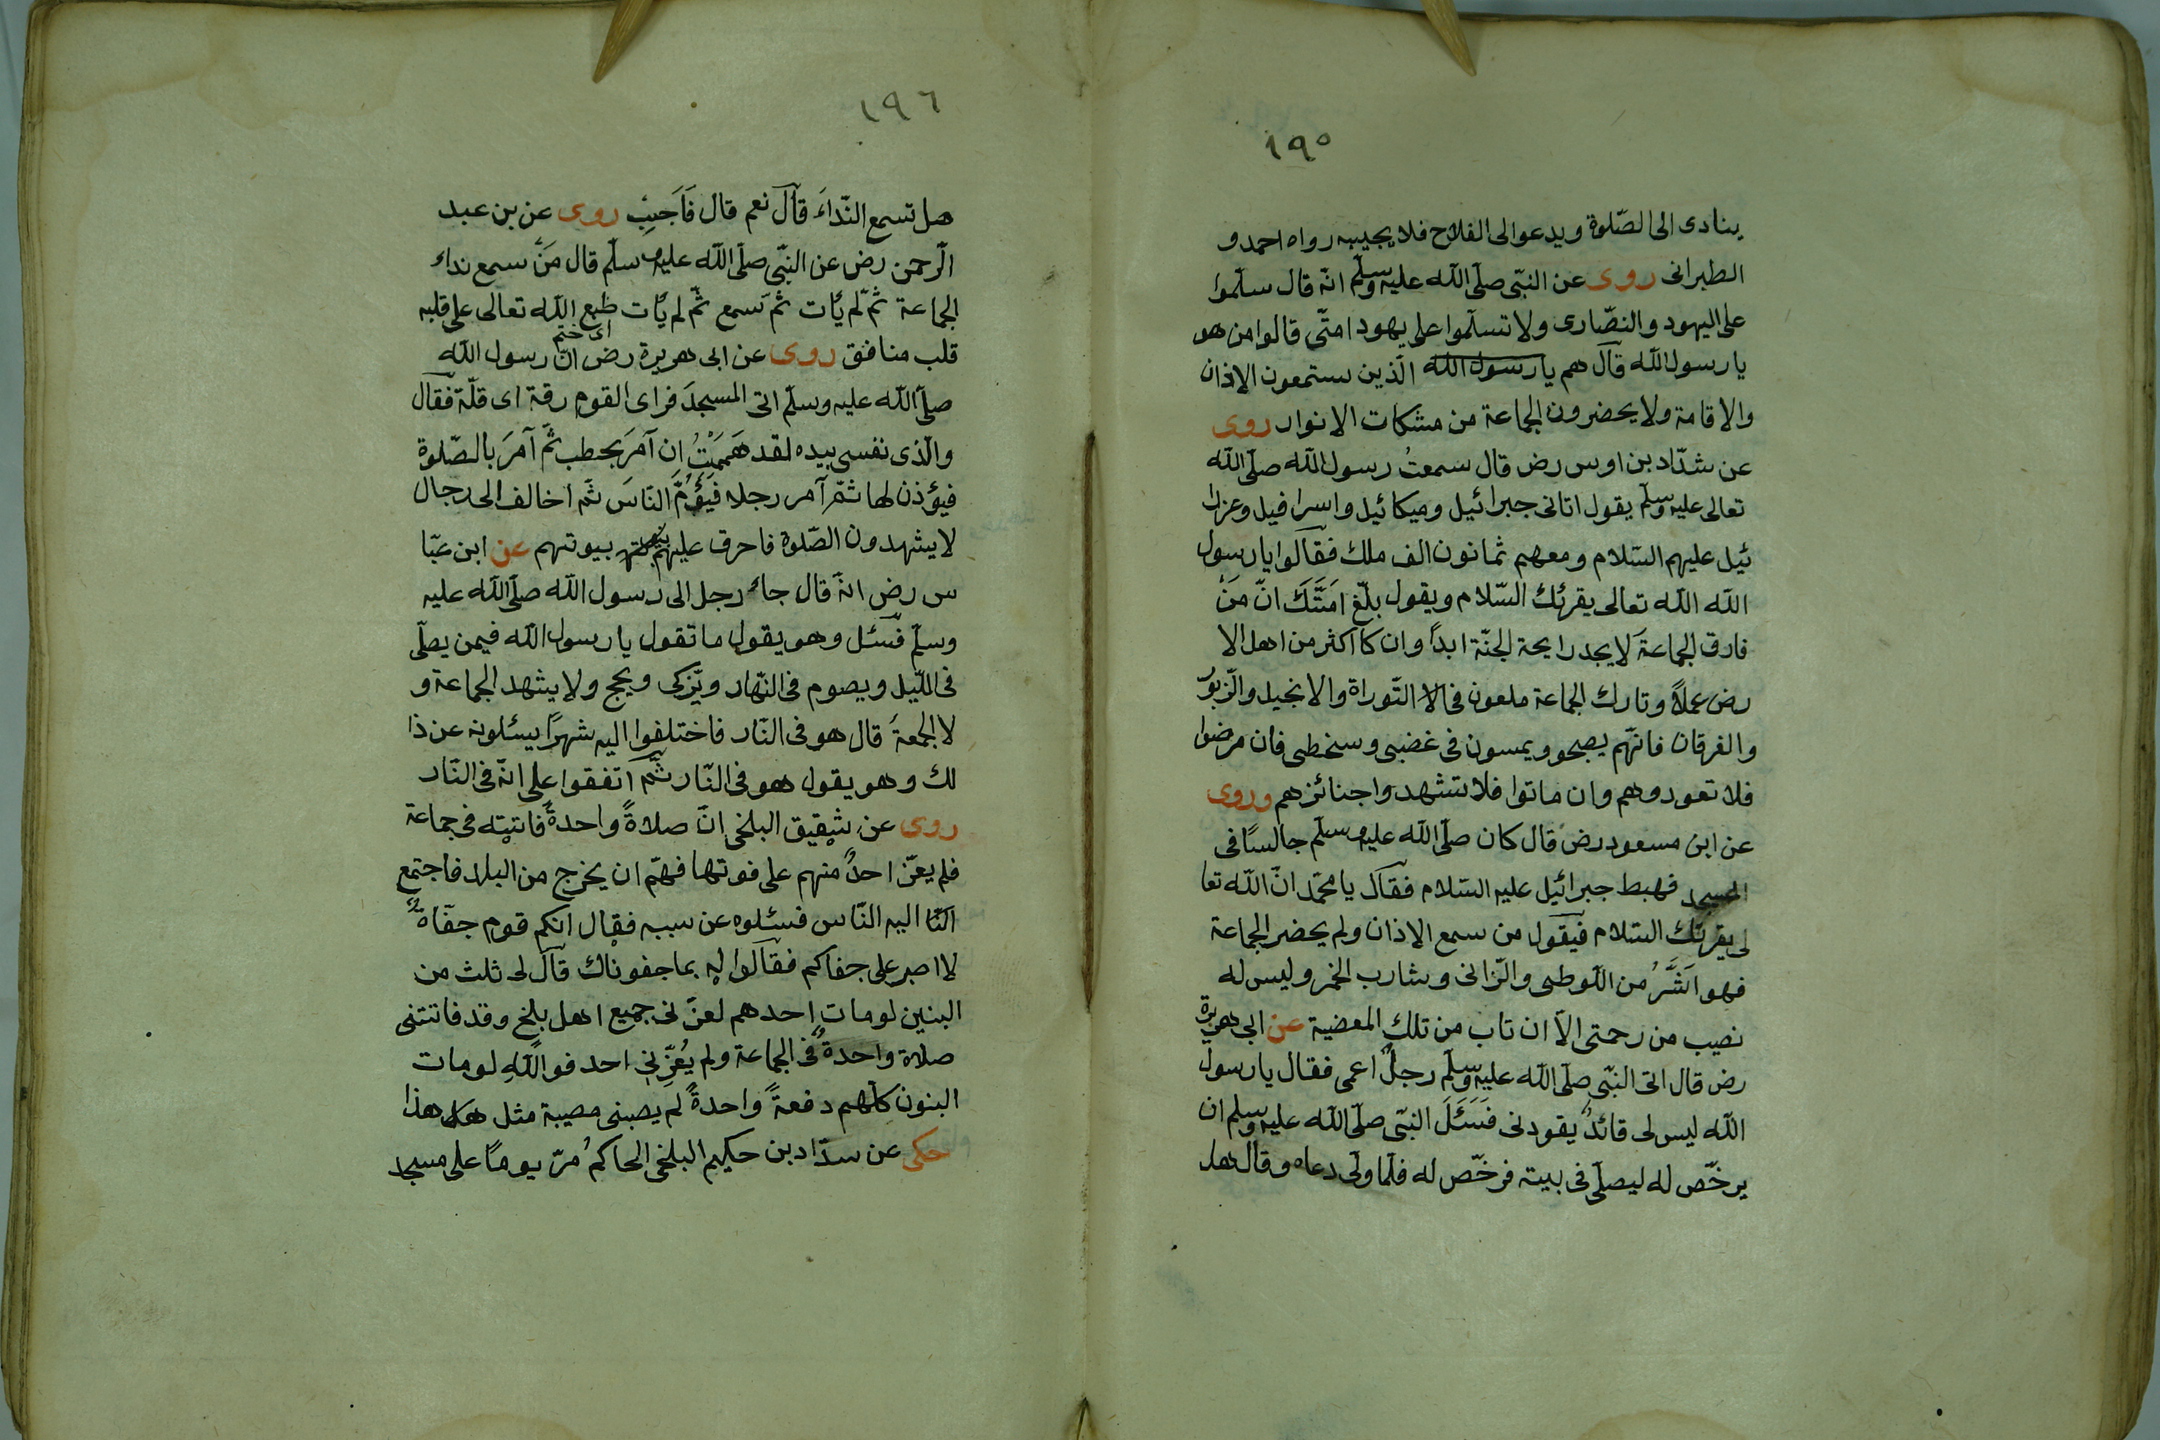 ١٩٥
ينادى الى الصّلوة ويدعو الى الفلاح فلا يجيبه رواه احمد و
الطبرانى روى عن النبّى صلّى اللّه عليه وسلّم انّه قال سلّموا
على اليهود والنصّارى ولا تسلّموا على يهود امتّى قالوا من هو
يا رسول اللّه قال هم يا رسول اللّه الّذين ستمعون الاذان
والاقامة ولا يحضرون الجماعة من مشكات الانوار روى
عن شدّاد بن اوس رض قال سمعتُ رسول اللّه صلّى اللّه
تعالى عليه وسلّم يقول اتانى جبرائيل وميكائيل واسرافيل وعزرا
ئيل عليهم السّلام ومعهم ثمانون الف ملك فقالوا يا رسول
اللّه اللّه تعالى يقرئك السّلام ويقول بلّغ امَتَّكَ انّ مَنْ
فارق الجماعةَ لا يجد رايحة الجنّة ابداً وان كا اكثر من اهل الا
رض عملاً وتارك الجماعة ملعون فى التّوراة والانجيل والّزبوُر
والفرقان فانّهم يصبحو ويمسون فى غضبى وسخطى فان مرضوا
فلا تعودوهم وان ماتوا فلا تشهدوا جنائزهم وروى
عن ابن مسعود رض قال كان صلّى اللّه عليه وسلّم جالسًا فى
المسجد فهبط جبرائيل عليه السّلام فقال يا محمّد انّ اللّه تعا
لى يقرئك السّلام فيقول من سمع الاذان ولم يحضر الجماعة
فهو اَشَّرُ من اللّوطى والزّانى وشارب الخمر وليس له
نصيب من رحمتى الاّ ان تاب من تلك المعضية عن ابى هريرة
رض قال اتى النبّى صلّى اللّه عليه وسلّم رجلٌ اعمى فقال يا رسول
اللّه ليس لى قائدٌ يقودنى فَسَئَلَ النبّى صلّى اللّه عليه وسلم ان
يرخّص له ليصلّى فى بيته فرخّص له فلمّا ولّى دعاه وقال هل
١٩٦
هل تسمع النّداءَ قال نعم قال فَاَجِبْ روى عن بن عبد
الّرحمن رض عن النبّى صلّى اللّه عليه وسلّم قال مَنْ سمع نداء
الجماعة ثمّ لم يأت ثم سمع ثمّ لم يأت طبع اللّه تعالى على قلبه
اى ختم
قلب منافق روى عن ابى هريرة رض انّ رسول اللّه
صلّى اللّه عليه وسلّم اتى المسجدَ فراى القوم رقة اى قلّة فقال
والّذى نفسى بيده لقد هَمَمْتُ ان آمرَ بحطب ثمّ آمرَ بالصّلوة
فيؤذن لها ثمّ آمر رجلا فَيَؤُمَّ النّاسَ ثم اخالف الى رجال
لا يشهدون الصّلوة فاحرق عليهم بيوتهم عن ابن عبّا
س رض انّه قال جاء رجل الى رسول اللّه صلّى اللّه عليه
وسلّم فسئل وهو يقول ما تقول يا رسول اللّه فيمن يصلّى
فى اللّيل ويصوم فى النّهار ويّزكى ويحج ولا يشهد الجماعة و
لا الجمعةَ قال هو فى النّار فاختلفوا اليه شهرًا يسئلونه عن ذا
لك وهو يقول هو فى النّار ثمّ اتفقوا على انّه فى النّار
روى عن شقيق البلخى انّ صلاةً واحدةً فاتته فى جماعة
فلم يعزّ احدٌ منهم على فوتها فهّم ان يخرج من البلد فاجتمع
اليه النّاس فسئلوه عن سببه فقال انكم قوم جفاةٌ
لا اصبر على جفاكم فقالوا له بما جفوناك قال لى ثلث من
البنين لو مات احدهم لعزّنى جميع اهل بلخ وقد فاتتنى
صلاة واحدةٌ فى الجماعة ولم يُعَزِّنى احد فو اللّهِ لو مات
البنون كلّهم دفعةً واحدةً لم يصبنى مصيبة مثل هذا
حكى عن سدّاد بن حكيم البلخى الحاكمُ مرّ يومًا على مسجد